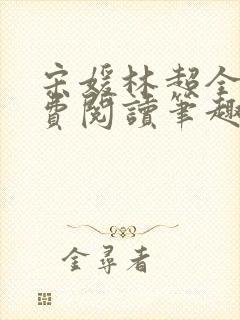 宋媛林超全
費閱讀筆趣
金尋者